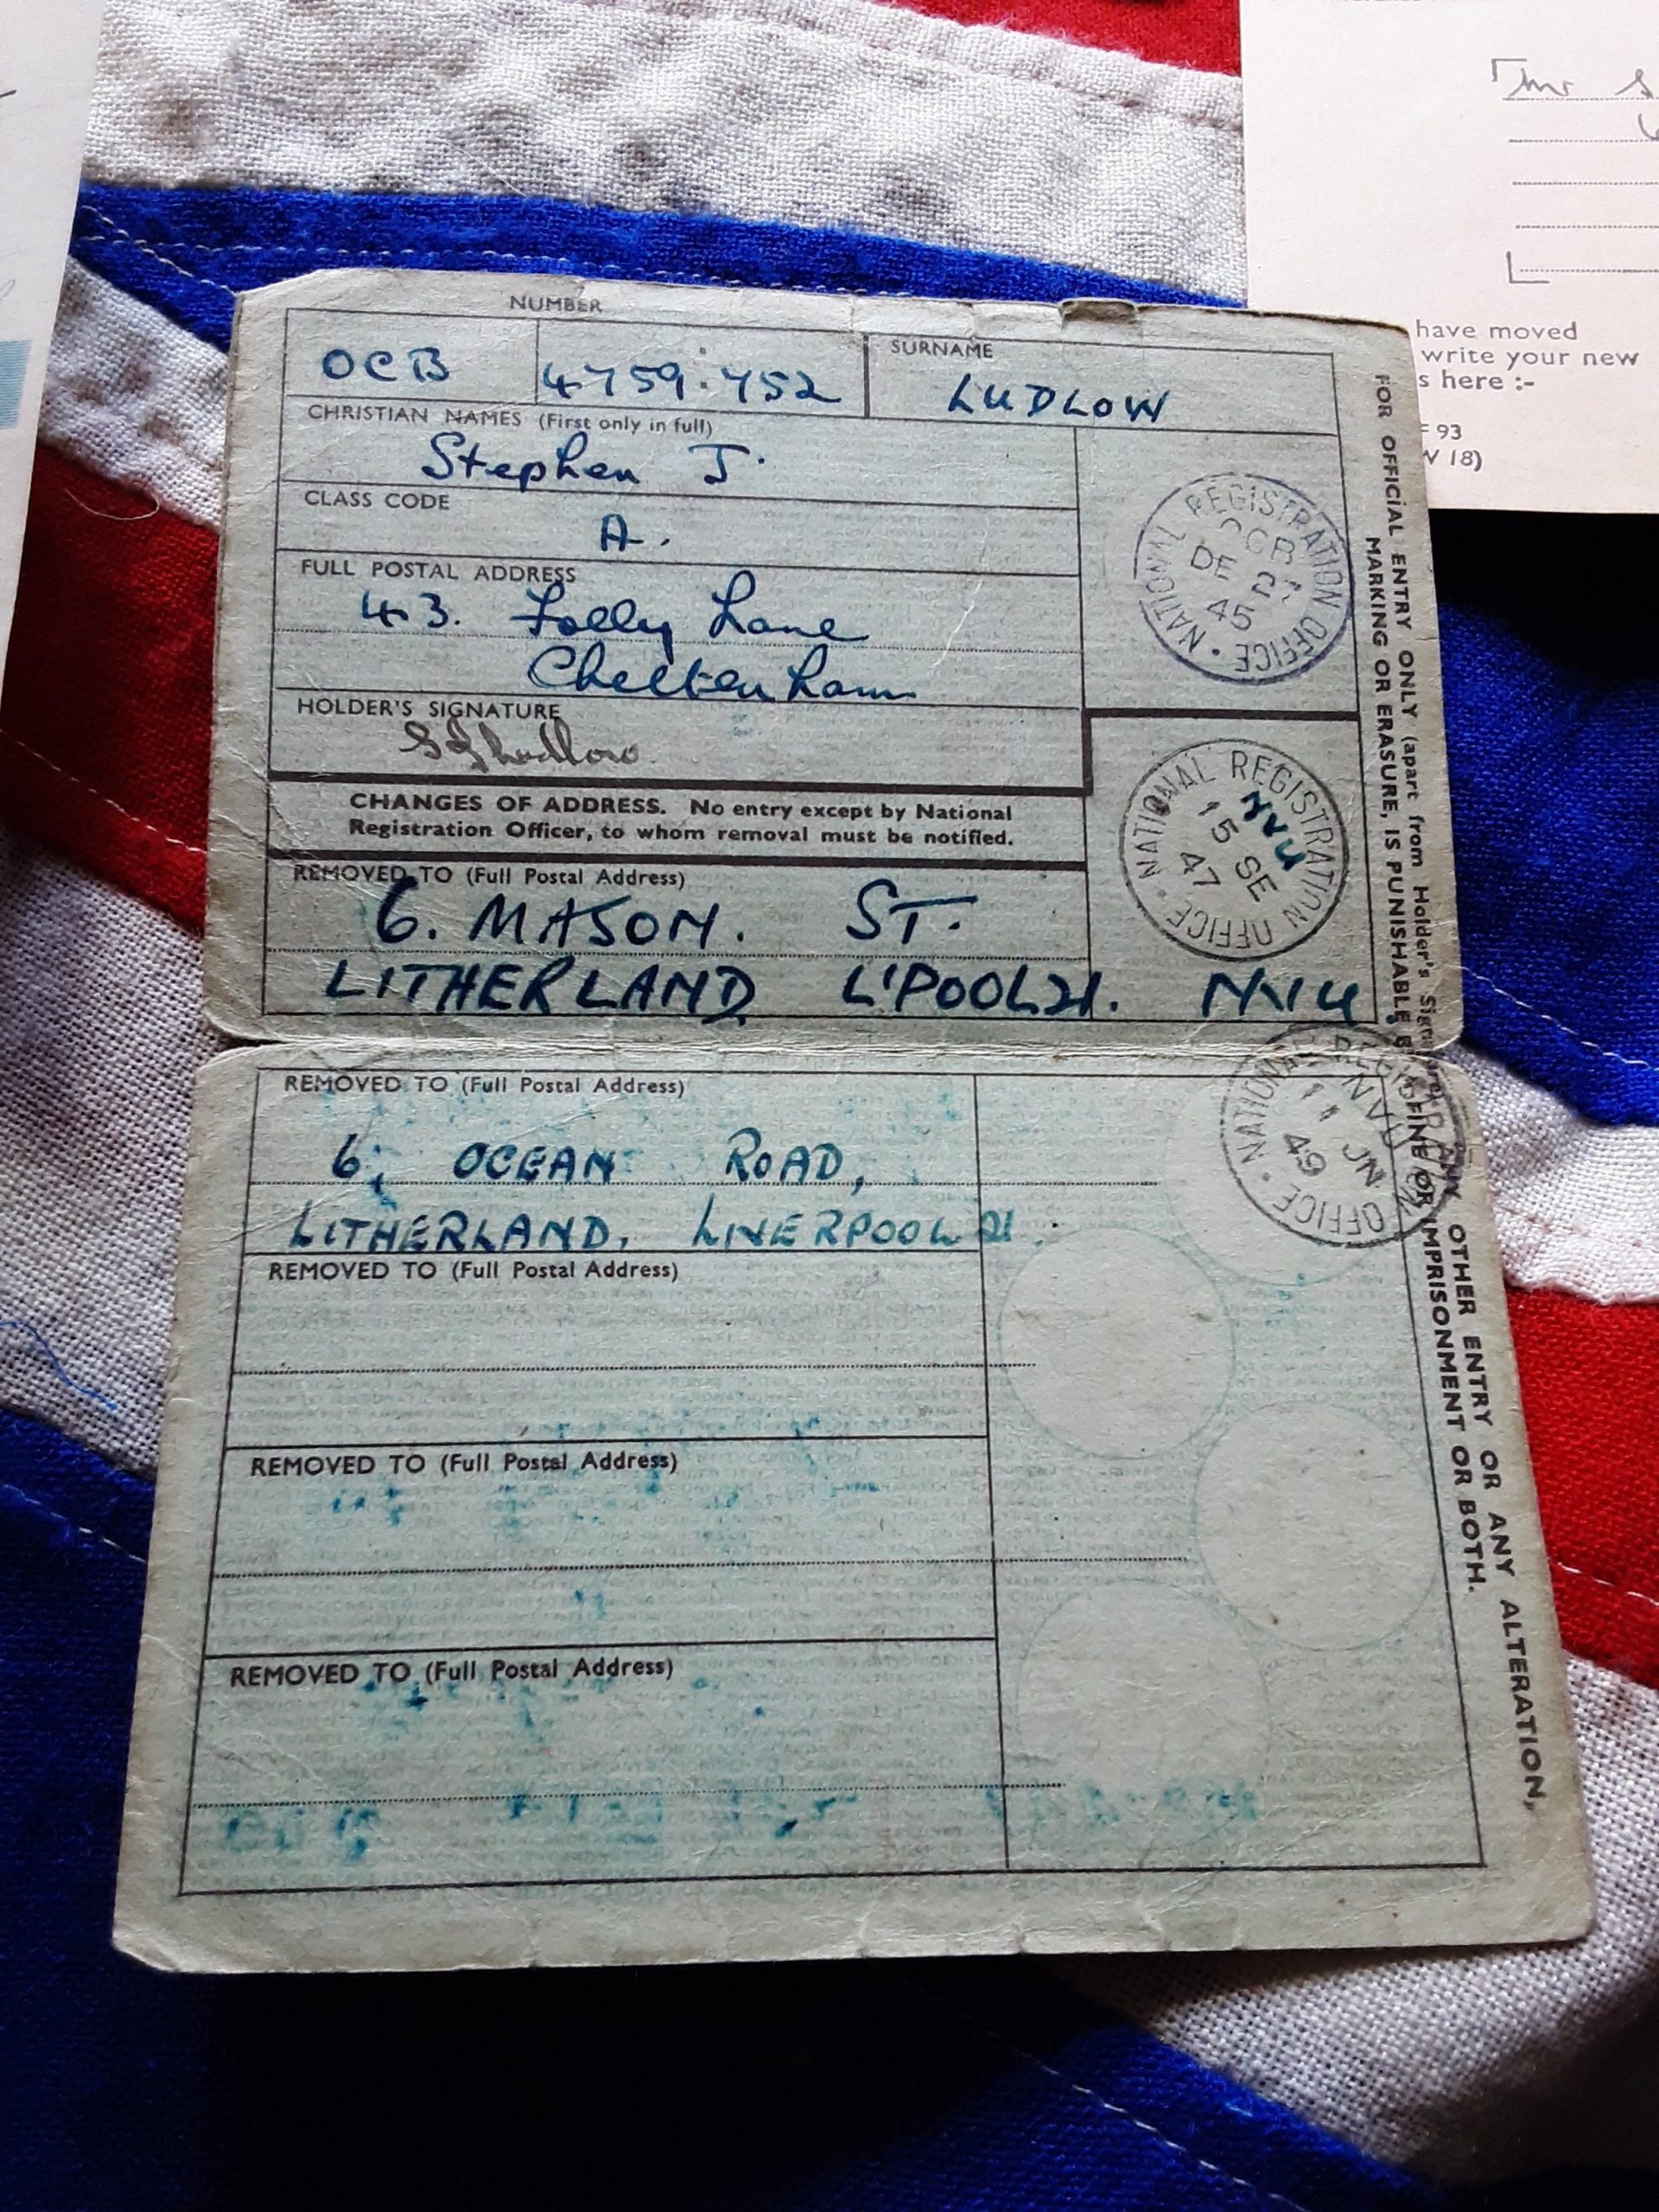 NUMBER
OCB 4759:752
SURNAME
LUDLOW
CHRISTIAN NAMES (First only in full)
Stephen J.
CLASS CODE
A.
FULL POSTAL ADDRESS
43. Folly Lane
Cheltenham
HOLDER'S SIGNATURE
S J Ludlow
NATIONAL REGISTRATION OFFICE
OCB
DE
45
CHANGES OF ADDRESS. No entry except by National
Registration Officer, to whom removal must be notified.
NATIONAL REGISTRATION OFFICE
NVU
15 SE
47
REMOVED TO (Full Postal Address)
6. MASON. ST.
LITHERLAND L'POOL 21.
REMOVED TO (Full Postal Address)
6, OCEAN ROAD,
LITHERLAND, LIVERPOOL 21.
NATIONAL REGISTRATION OFFICE
NVU
11 JN
49
REMOVED TO (Full Postal Address)
REMOVED TO (Full Postal Address)
REMOVED TO (Full Postal Address)
FOR OFFICIAL ENTRY ONLY (apart from Holder's Signature). ANY OTHER ENTRY OR ANY ALTERATION,
MARKING OR ERASURE, IS PUNISHABLE BY FINE OR IMPRISONMENT OR BOTH.
Mr S
have moved
write your new
s here :-
93
18)